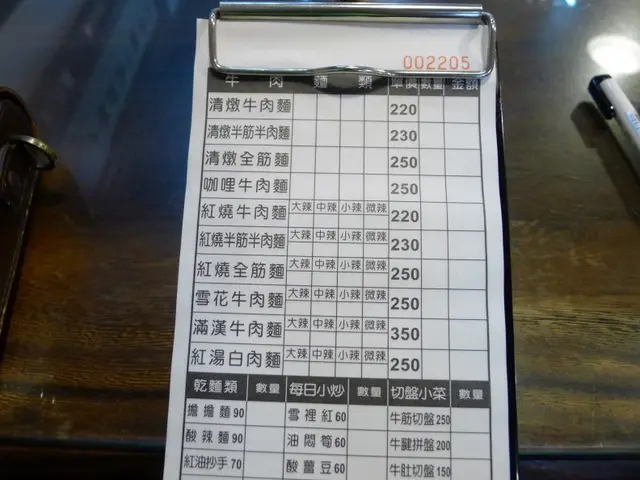 002205
牛肉麵類 單價 數量 金額
清燉牛肉麵 220
清燉半筋半肉麵 230
清燉全筋麵 250
咖哩牛肉麵 250
紅燒牛肉麵 大辣 中辣 小辣 微辣 220
紅燒半筋半肉麵 大辣 中辣 小辣 微辣 230
紅燒全筋麵 大辣 中辣 小辣 微辣 250
雪花牛肉麵 大辣 中辣 小辣 微辣 250
滿漢牛肉麵 大辣 中辣 小辣 微辣 350
紅湯白肉麵 大辣 中辣 小辣 微辣 250
乾麵類 數量 每日小炒 數量 切盤小菜
擔擔麵 90 雪裡紅 60 牛筋切盤 250
酸辣麵 90 油悶筍 60 牛腱拼盤 200
紅油抄手 70 酸薑豆 60 牛肚切盤 150